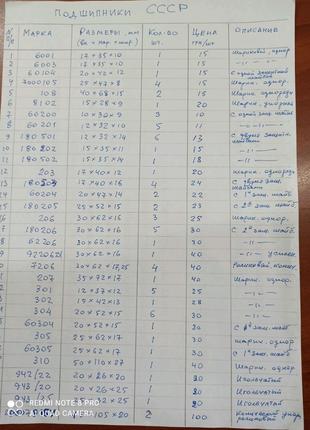 Подшипники СССР
№ п/п Марка Размеры, мм (вн × нар × шир.) Кол-во шт. Цена грн/шт Описание
1 6001 12×35×10 1 15 Шариковый, однор.
2 6003 17×35×10 1 15 -//-
3 60104 20×42×12 1 15 С одной защитной шайбой
4 7000105 25×47×8 4 15 Шарик. однор.
5 108 40×68×15 2 15 Шарик. однорядн
6 8102 15×28×9 1 20 Шарик.
7 60200 10×30×9 3 10 С одной защ. шайб
8 60201 12×32×10 5 11 -//-
9 180501 12×32×14 6 13 С двумя защитн. шайбами
10 180202 15×35×11 1 15 -//-
11 180502 15×35×14 1 18 -//-
12 203 17×40×12 1 20 Шарик. однорядн
13 180503 17×40×16 4 24 С двумя защ. шайбами
14 60204 20×47×14 2 22 С 1ой защ. шайб
15 180205 25×52×15 2 23 С 2я защ. шайб
16 206 30×62×16 3 25 Шарик. однор.
17 180206 30×62×16 5 30 С 2я защ. шайб.
18 62206 30×62×16 1 30 -//-
19 30×62×16 1 40 -//-
20 7206 30×62×17,25 4 40 Роликовый конич.
21 207 35×72×17 1 40 Шарик. однор.
301 12×37×12 5 25 -//-
302 15×42×13 2 28 -//-
304 20×52×15 6 30 -//-
60304 20×52×15 1 30 С 1 защ. шайб
305 25×62×17 1 30 Шарик. однор.
60305 25×62×17 1 30 С 1 защ. шайб.
310 50×110×27 1 40 Шарик. однор.
942/22 20×26×20 1 20 Игольчатый
943/20 20×26×25 1 20 Игольчатый
1 20 Игольчатый
2 100
REDMI NOTE 8 PRO
AI QUAD CAMERA